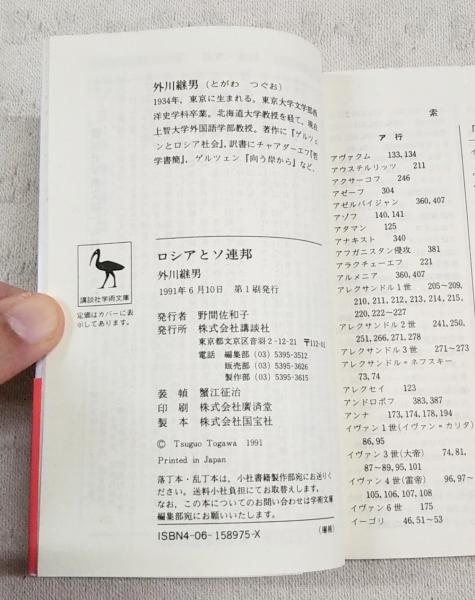 外川継男（とがわ　つぐお）
1934年，東京に生まれる。東京大学文学部西
洋史学科卒業。北海道大学教授を経て，現在
上智大学外国語学部教授。著作に『ゲルツェ
ンとロシア社会』，訳書にチャアダーエフ『哲
学書簡』，ゲルツェン『向う岸から』など。
ロシアとソ連邦
外川継男
1991年6月10日　第1刷発行
講談社学術文庫
定価はカバーに表
示してあります。
発行者　野間佐和子
発行所　株式会社講談社
東京都文京区音羽2-12-21 〒112-01
電話　編集部 (03) 5395-3512
販売部 (03) 5395-3626
製作部 (03) 5395-3615
装　幀　蟹江征治
印　刷　株式会社廣済堂
製　本　株式会社国宝社
© Tsuguo Togawa 1991
Printed in Japan
落丁本・乱丁本は，小社書籍製作部宛にお送りく
ださい。送料小社負担にてお取替えします。
なお，この本についてのお問い合わせは学術文庫
編集部宛にお願いいたします。
ISBN4-06-158975-X
索
ア 行
アヴァクム　133,134
アウステルリッツ　211
アクサーコフ　246
アゼーフ　304
アゼルバイジャン　360,407
アゾフ　140,141
アタマン　125
アナキスト　340
アフガニスタン侵攻　381
アラクチェーエフ　221
アルメニア　360,407
アレクサンドル1世　205~209,
210,211,212,213,214,215,
220,222~227
アレクサンドル2世　241,250,
251,266,271,278
アレクサンドル3世　271~273
アレクサンドル＝ネフスキー
73,74
アレクセイ　123
アンドロポフ　383,387
アンナ　173,174,178,194
イヴァン1世（イヴァン＝カリタ）
86,95
イヴァン3世(大帝)　74,81,
87~89,95,101
イヴァン4世(雷帝)　96,97,
105,106,107,108
イヴァン6世　175
イーゴリ　46,51~53